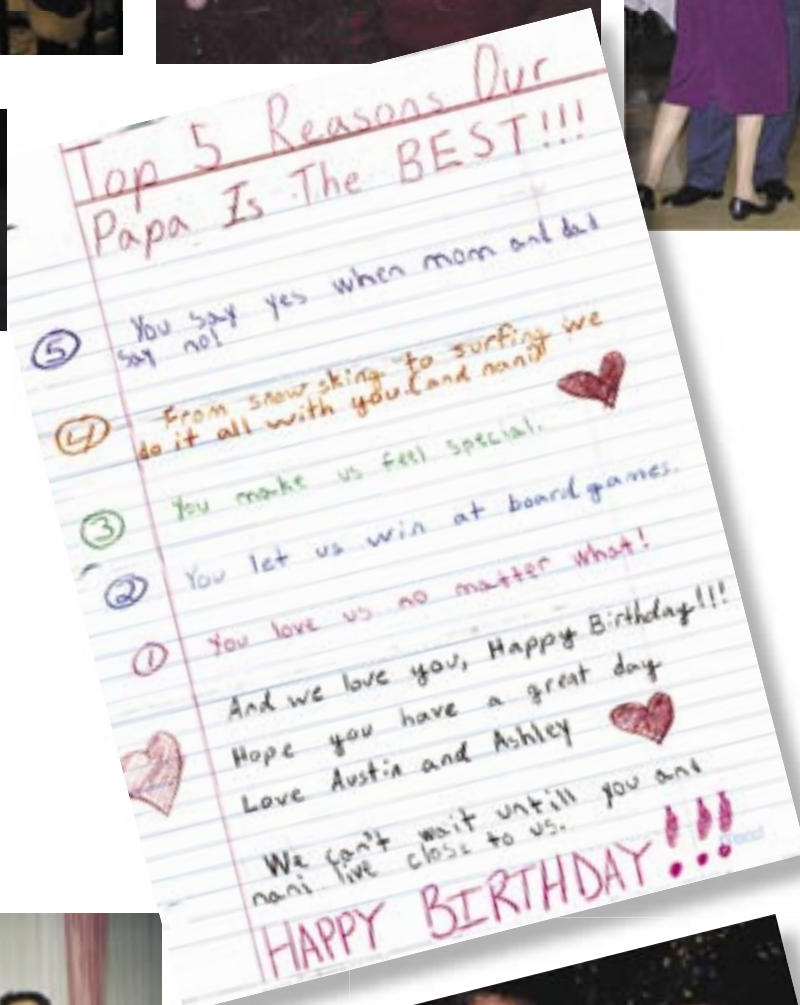 Top 5 Reasons Our
Papa Is The BEST!!!
⑤ You say yes when mom and dad
say no!
④ From snow sking to surfing we
do it all with you. (and nani)
③ You make us feel special.
② You let us win at board games.
① You love us no matter what!
And we love you, Happy Birthday!!!
Hope you have a great day
Love Austin and Ashley
We can't wait untill you and
nani live close to us.
HAPPY BIRTHDAY!!!